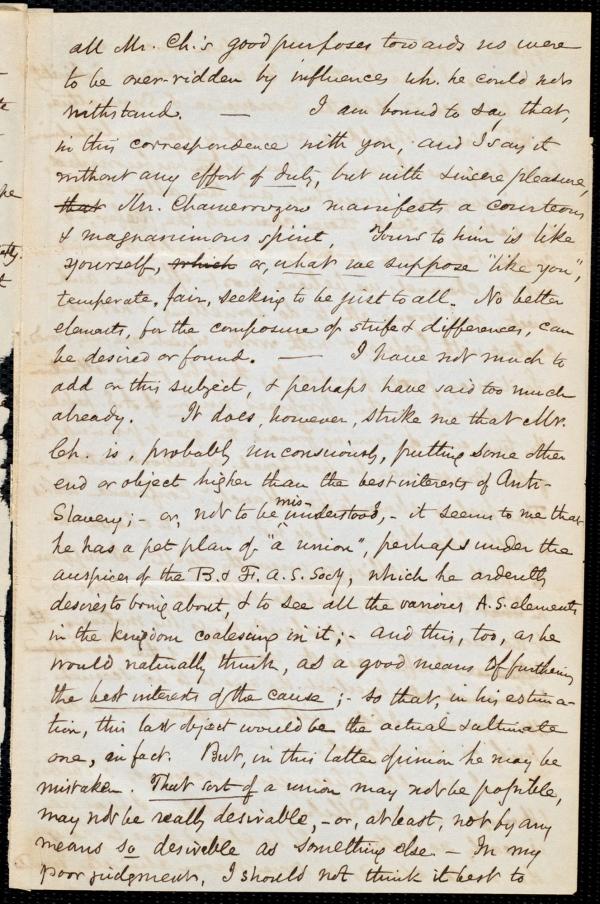 all Mr. Ch.'s good purposes towards us were
to be over-ridden by influences wh. he could not
withstand. — I am bound to say that,
in this correspondence with you, and I say it
without any effort of duty, but with sincere pleasure,
that Mr. Chamerovzow manifests a courteous
& magnanimous spirit, Yours to him is like
yourself, which or, what we suppose "like you",
temperate, fair, seeking to be just to all. No better
elements, for the composure of strife & differences, can
be desired or found. — I have not much to
add on this subject, & perhaps have said too much
already. It does, however, strike me that Mr.
Ch. is, probably unconsciously, putting some other
end or object higher than the best interests of Anti-
Slavery; - or, not to be mis-understood, - it seems to me that
he has a pet plan of "a union", perhaps under the
auspices of the B. & F. A. S. Socy, which he ardently
desires to bring about, & to see all the various A. S. elements
in the kingdom coalescing in it; - and this, too, as he
would naturally think, as a good means of furthering
the best interests of the cause; - so that, in his estima-
tion, this last object would be the actual & ultimate
one, in fact. But, in this latter opinion he may be
mistaken. That sort of a union may not be possible,
may not be really desirable, - or, at least, not by any
means so desirable as something else - In my
poor judgment, I should not think it best to